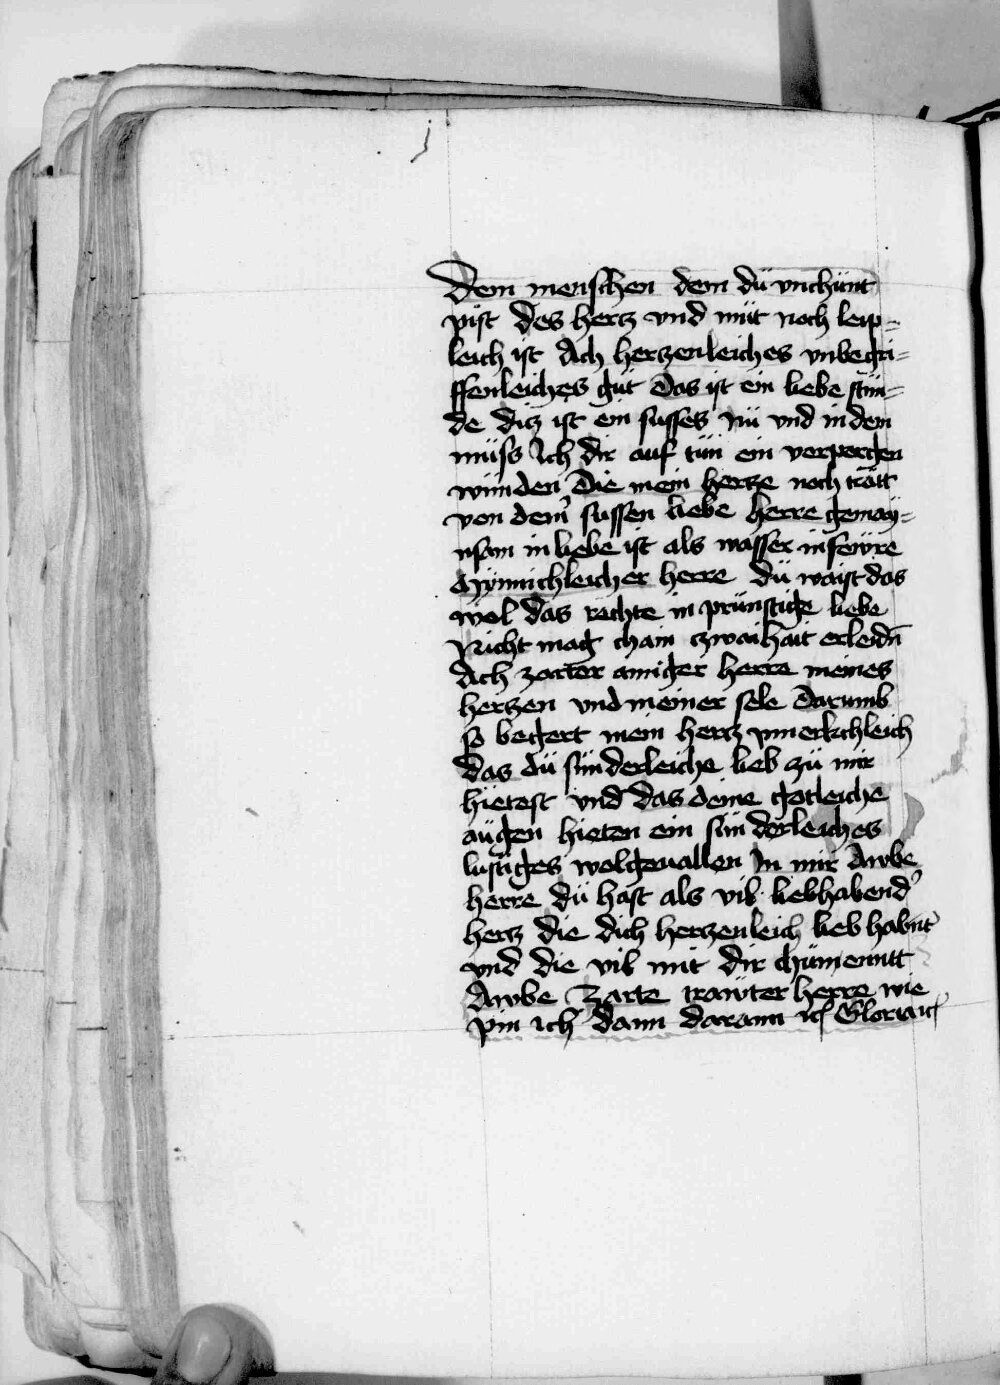 j
Dem menschen dem dü vnchünt
pist des hertz vnd müt noch leip-
leich ist Ach hertzenleiches vnbegri-
ffenleiches güt das ist ein liebe stün-
de ditz ist ein süsses nü vnd in dem
müss Ich dir auf tün ein verporgen
wünden Die mein hertze noch trött
von dein' süssen liebe herre gemay-
nsam in liebe ist als wasser in fewre
Mynnichleicher herre dü waist das
wol das rechte in prünstige liebe
Nicht mag chain zwaihait erleidn̄
Ach zarter ainiger herre meines
hertzen vnd meiner sele Darumb
so begert mein hertz ynnerkchleich
das dü sünderleiche lieb zü mir
hietest vnd das deine gotleiche
augen hieten ein sün derleiches
lustiges wolgeuallen In mir Awbe
herre dü hast als vil liebhabend'
hertz die dich hertzenleich lieb habnt
vnd die vil mit dir chümenntt
Awbe zarte trawter herre wie
pin ich dann darann